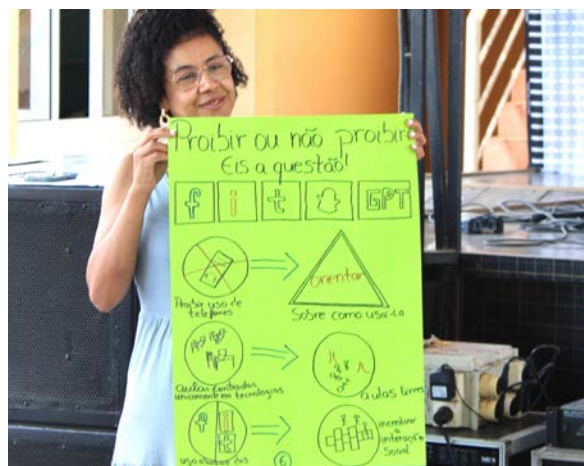 Proibir ou não proibir
Eis a questão!
f i t GPT
Proibir uso de
telefones
orientar
Sobre como usá-lo
aulas
unicamente em tecnologias
aulas livres
f
t
uso
das
incentivar
a
interação
social
6